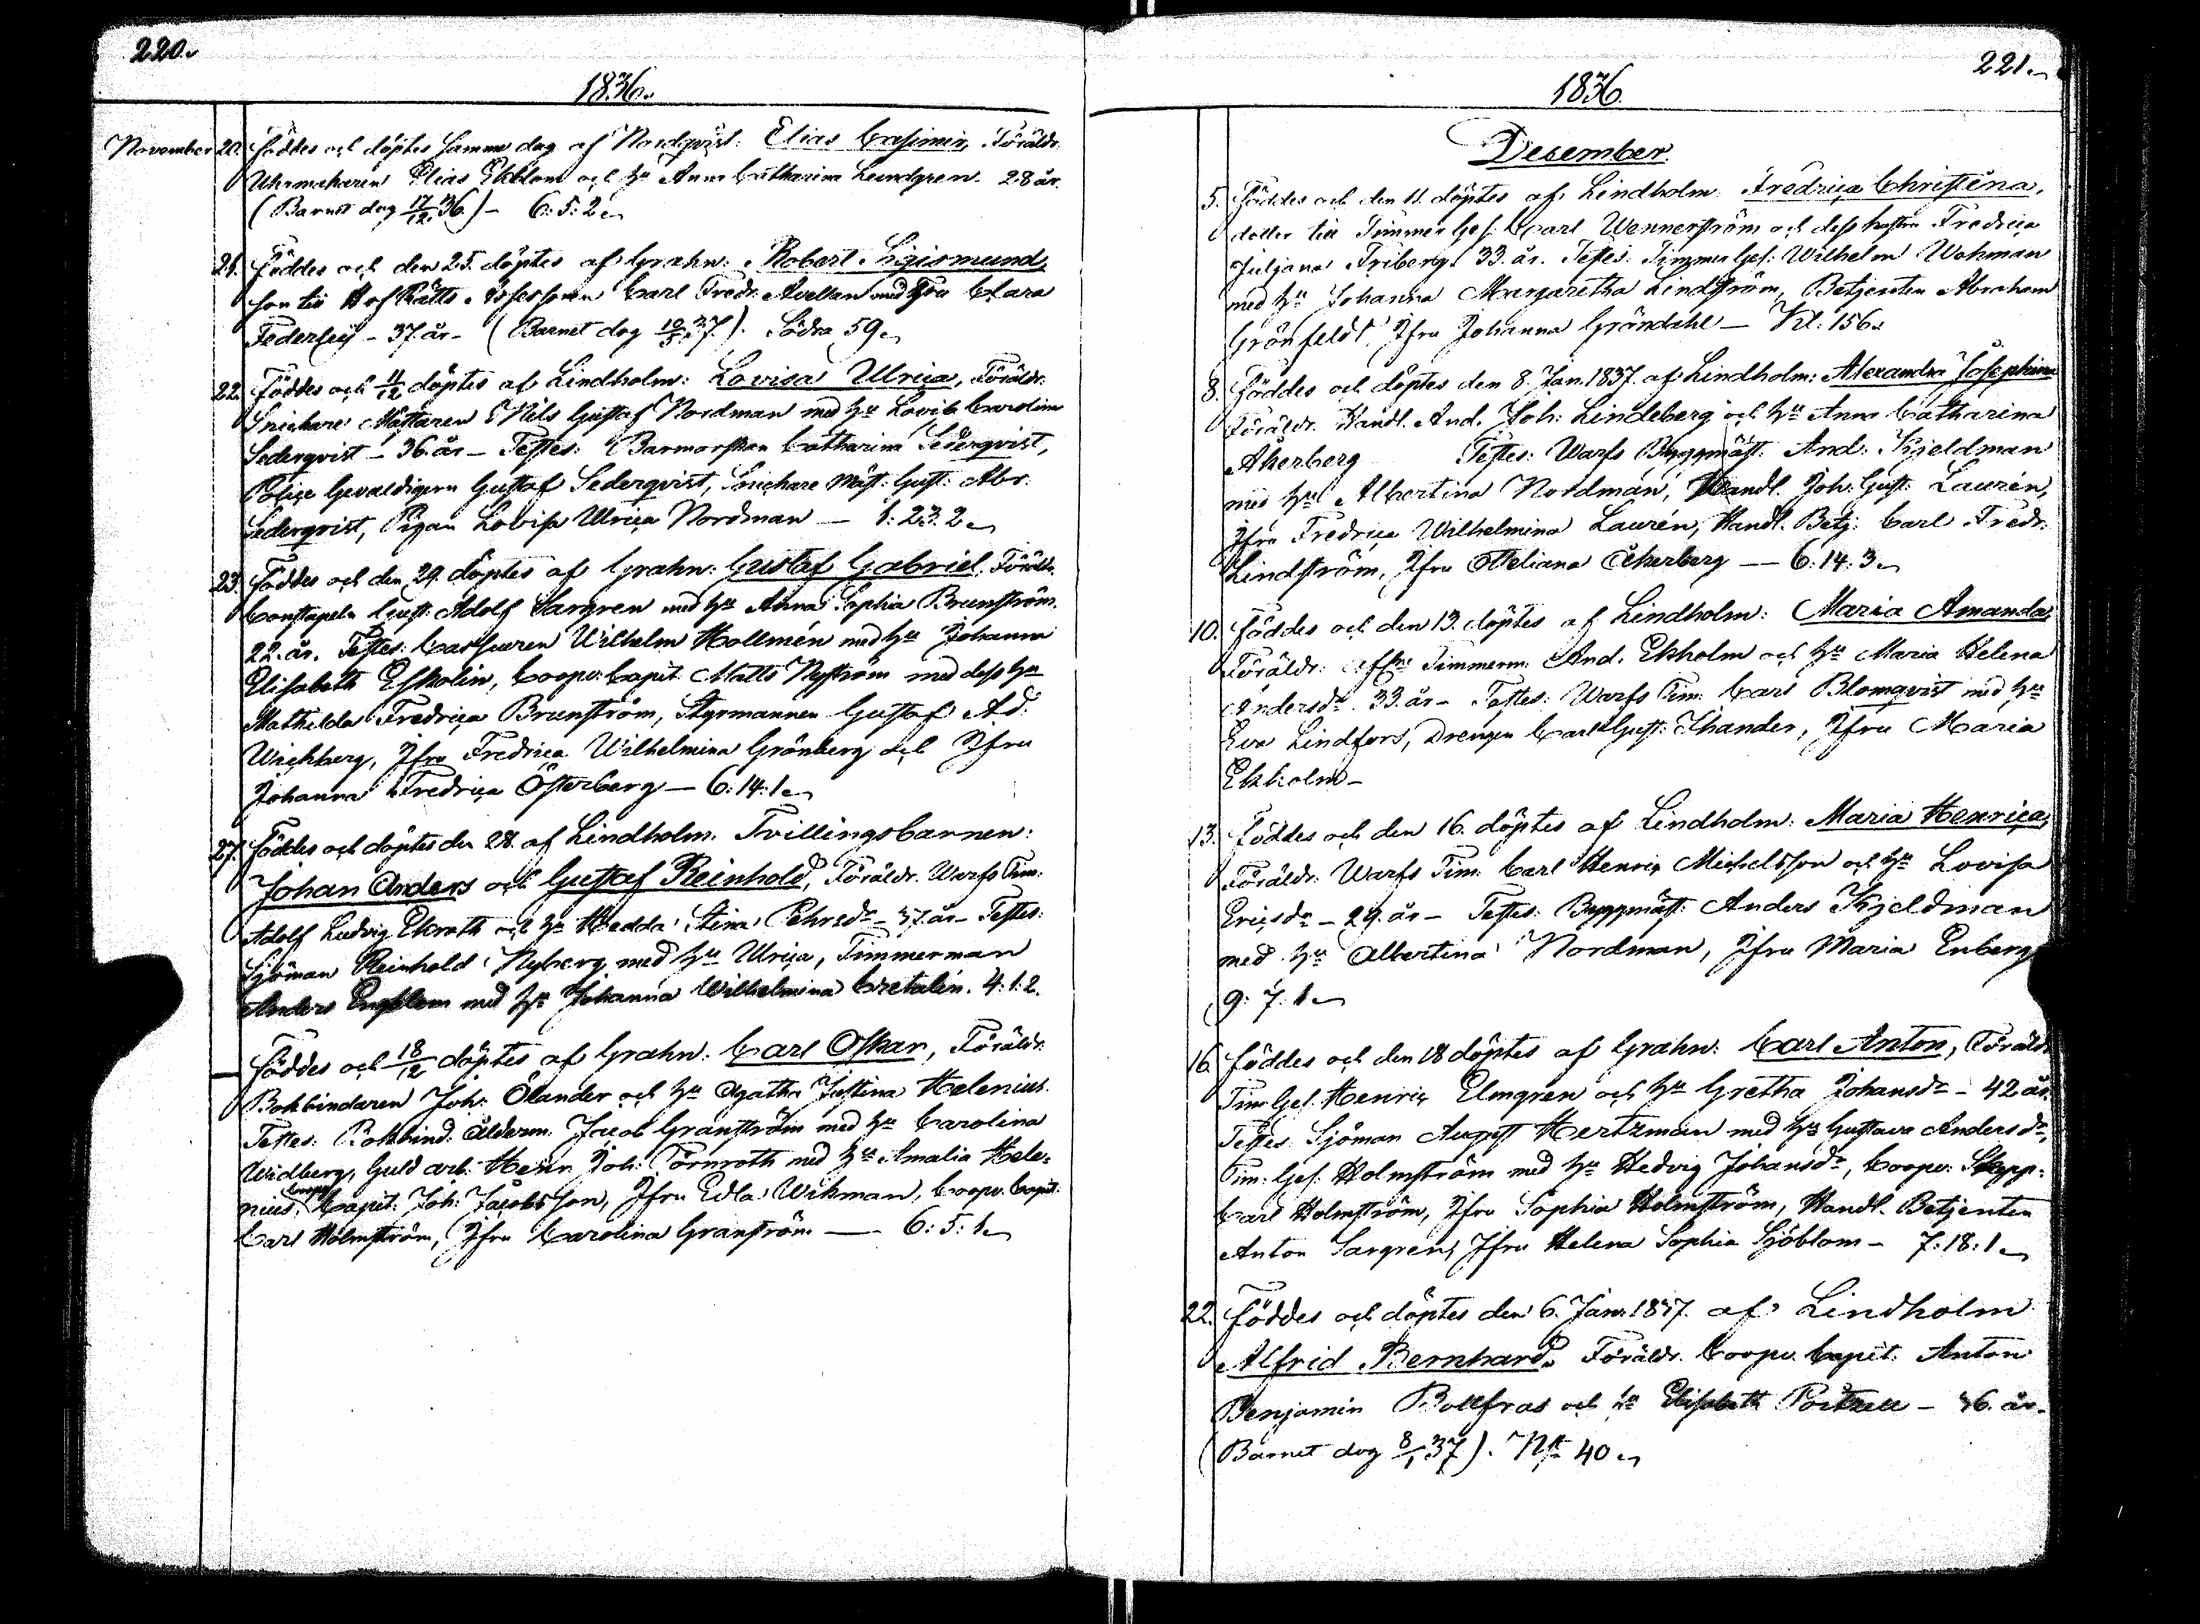 220.
1836.
November 20. Föddes och döptes samma dag af Nordqvist: Elias Casimir, Föräldr.
Uhrmakaren Elias Ekblom och hu Anna Catharina Lundgren. 28 år.
(Barnet dog 17/12 36.) - 6:5:2
21. Föddes och den 25. döptes af Grahn: Robert Sigismund,
son till HofRätts Assessoren Carl Fredr. Avellan med hu Clara
Federley - 37 år - (Barnet dog 37.). Södra 59
22. Föddes och 11/12 döptes af Lindholm: Lovisa Ulrica, Föräldr.
Snickare Mästaren Nils Gustaf Nordman med hu Lovisa Carolina
Sederqvist - 36 år - Testes: Barnmorskan Catharina Sederqvist,
Police Gevaldigern Gustaf Sederqvist, Snickare Mäst: Gust: Abr.
Sederqvist, Pigan Lovisa Ulrica Nordman - 1:23.2
23. Föddes och den 29. döptes af Grahn: Gustaf Gabriel. Föräldr.
Constapeln Gust: Adolf Sargren med hu Anna Sophia Brunström.
22. år. Testes: Wilhelm Hollmén med hu Johanna
Elisabeth Eskolin, Coopv. Capit. Matts Nyström med dess hu
Mathilda Fredrica Brunström, Styrmannen Gustaf Ad:
Wichberg, Jfru Fredrica Wilhelmina Grönberg och Jfru
Johanna Fredrica Österberg - 6:14:1
27. Föddes och döptes den 28. af Lindholm: Tvillingsbarnen:
Johan Anders och Gustaf Reinhold, Föräldr. Warfs Tim:
Adolf Ludvig Ekroth och hu Hedda Stina Ehrsdr - 37. år - Testes:
Sjöman Reinhold Nyberg med hu Ulrica, Timmerman
Anders Engblom med hu Johanna Wilhelmina Cretalin. 4:1:2.
- Föddes och 18/12 döptes af Grahn: Carl Oskar, Föräldr.
Bokbindaren Joh: Ölander och hu Agatha Justina Helenius.
Testes: Bokbind. Ålderm: Jacob Granström med hu Carolina
Widberg, Guld arb: Henr. Joh: Törnroth med hu Amalia Hele-
nius, Coopv. Capit: Joh: Jacobsson, Jfru Edla Wikman, Coopv. Capit:
Carl Holmström, Jfru Carolina Granström - 6:5:1
221.
1836.
December.
5. Föddes och den 11. döptes af Lindholm: Fredrica Christina,
dotter till Timmer Ges: Carl Wennerström och dess hustru Fredrica
Juliana Friberg. 33. år. Testes: Timmer Ges: Wilhelm Wohman
med hu Johanna Margaretha Lindström, Betjenten Abraham
Grönfeldt, Jfru Johanna Gröndahl - Kl: 156.
8. Föddes och döptes den 8. Jan. 1837. af Lindholm: Alexandra Josephina
Föräldr. Handl. And. Joh: Lindeberg och hu Anna Catharina
Åkerberg Testes: Warfs Byggmäst: And: Kjeldman
med hu Albertina Nordman, Handl. Joh: Gust: Laurén,
Jfru Fredrica Wilhelmina Laurén, Handl. Betj: Carl Fredr:
Lindström, Jfru Otteliana Åkerberg - 6:14:3
10. Föddes och den 13. döptes af Lindholm: Maria Amanda,
Föräldr: Timmerm: And. Ekholm och hu Maria Helena
Andersdr. 33. år - Testes: Warfs Tim: Carl Blomqvist med hu
Eva Lindfors, Drengen Carl Gust: Thander, Jfru Maria
Ekholm -
13. Föddes och den 16. döptes af Lindholm: Maria Henrica,
Föräldr. Warfs Tim: Carl Henric Michelsson och hu Lovisa
Ericsdr - 29. år - Testes: Byggmäst: Anders Kjeldman
med hu Albertina Nordman, Jfru Maria Enberg
9:7:1
16. Föddes och den 18 döptes af Grahn: Carl Anton, Föräldr.
Tim: Ges. Henric Elmgren och hu Gretha Johansdr - 42 år.
Testes: Sjöman August Hertzman med hu Gustava Andersdr,
Tim: Ges. Holmström med hu Hedvig Johansdr, Coopv: Skepp:
Carl Holmström, Jfru Sophia Holmström, Handl. Betjenten
Anton Sargren, Jfru Helena Sophia Sjöblom - 7:18:1
22. Föddes och döptes den 6. Jan: 1837. af Lindholm
Alfrid Bernhard. Föräldr. Coopv. Capit: Anton
Benjamin Bollfras och hu Elisabeth - 36. år.
(Barnet dog 8/1 37). 40